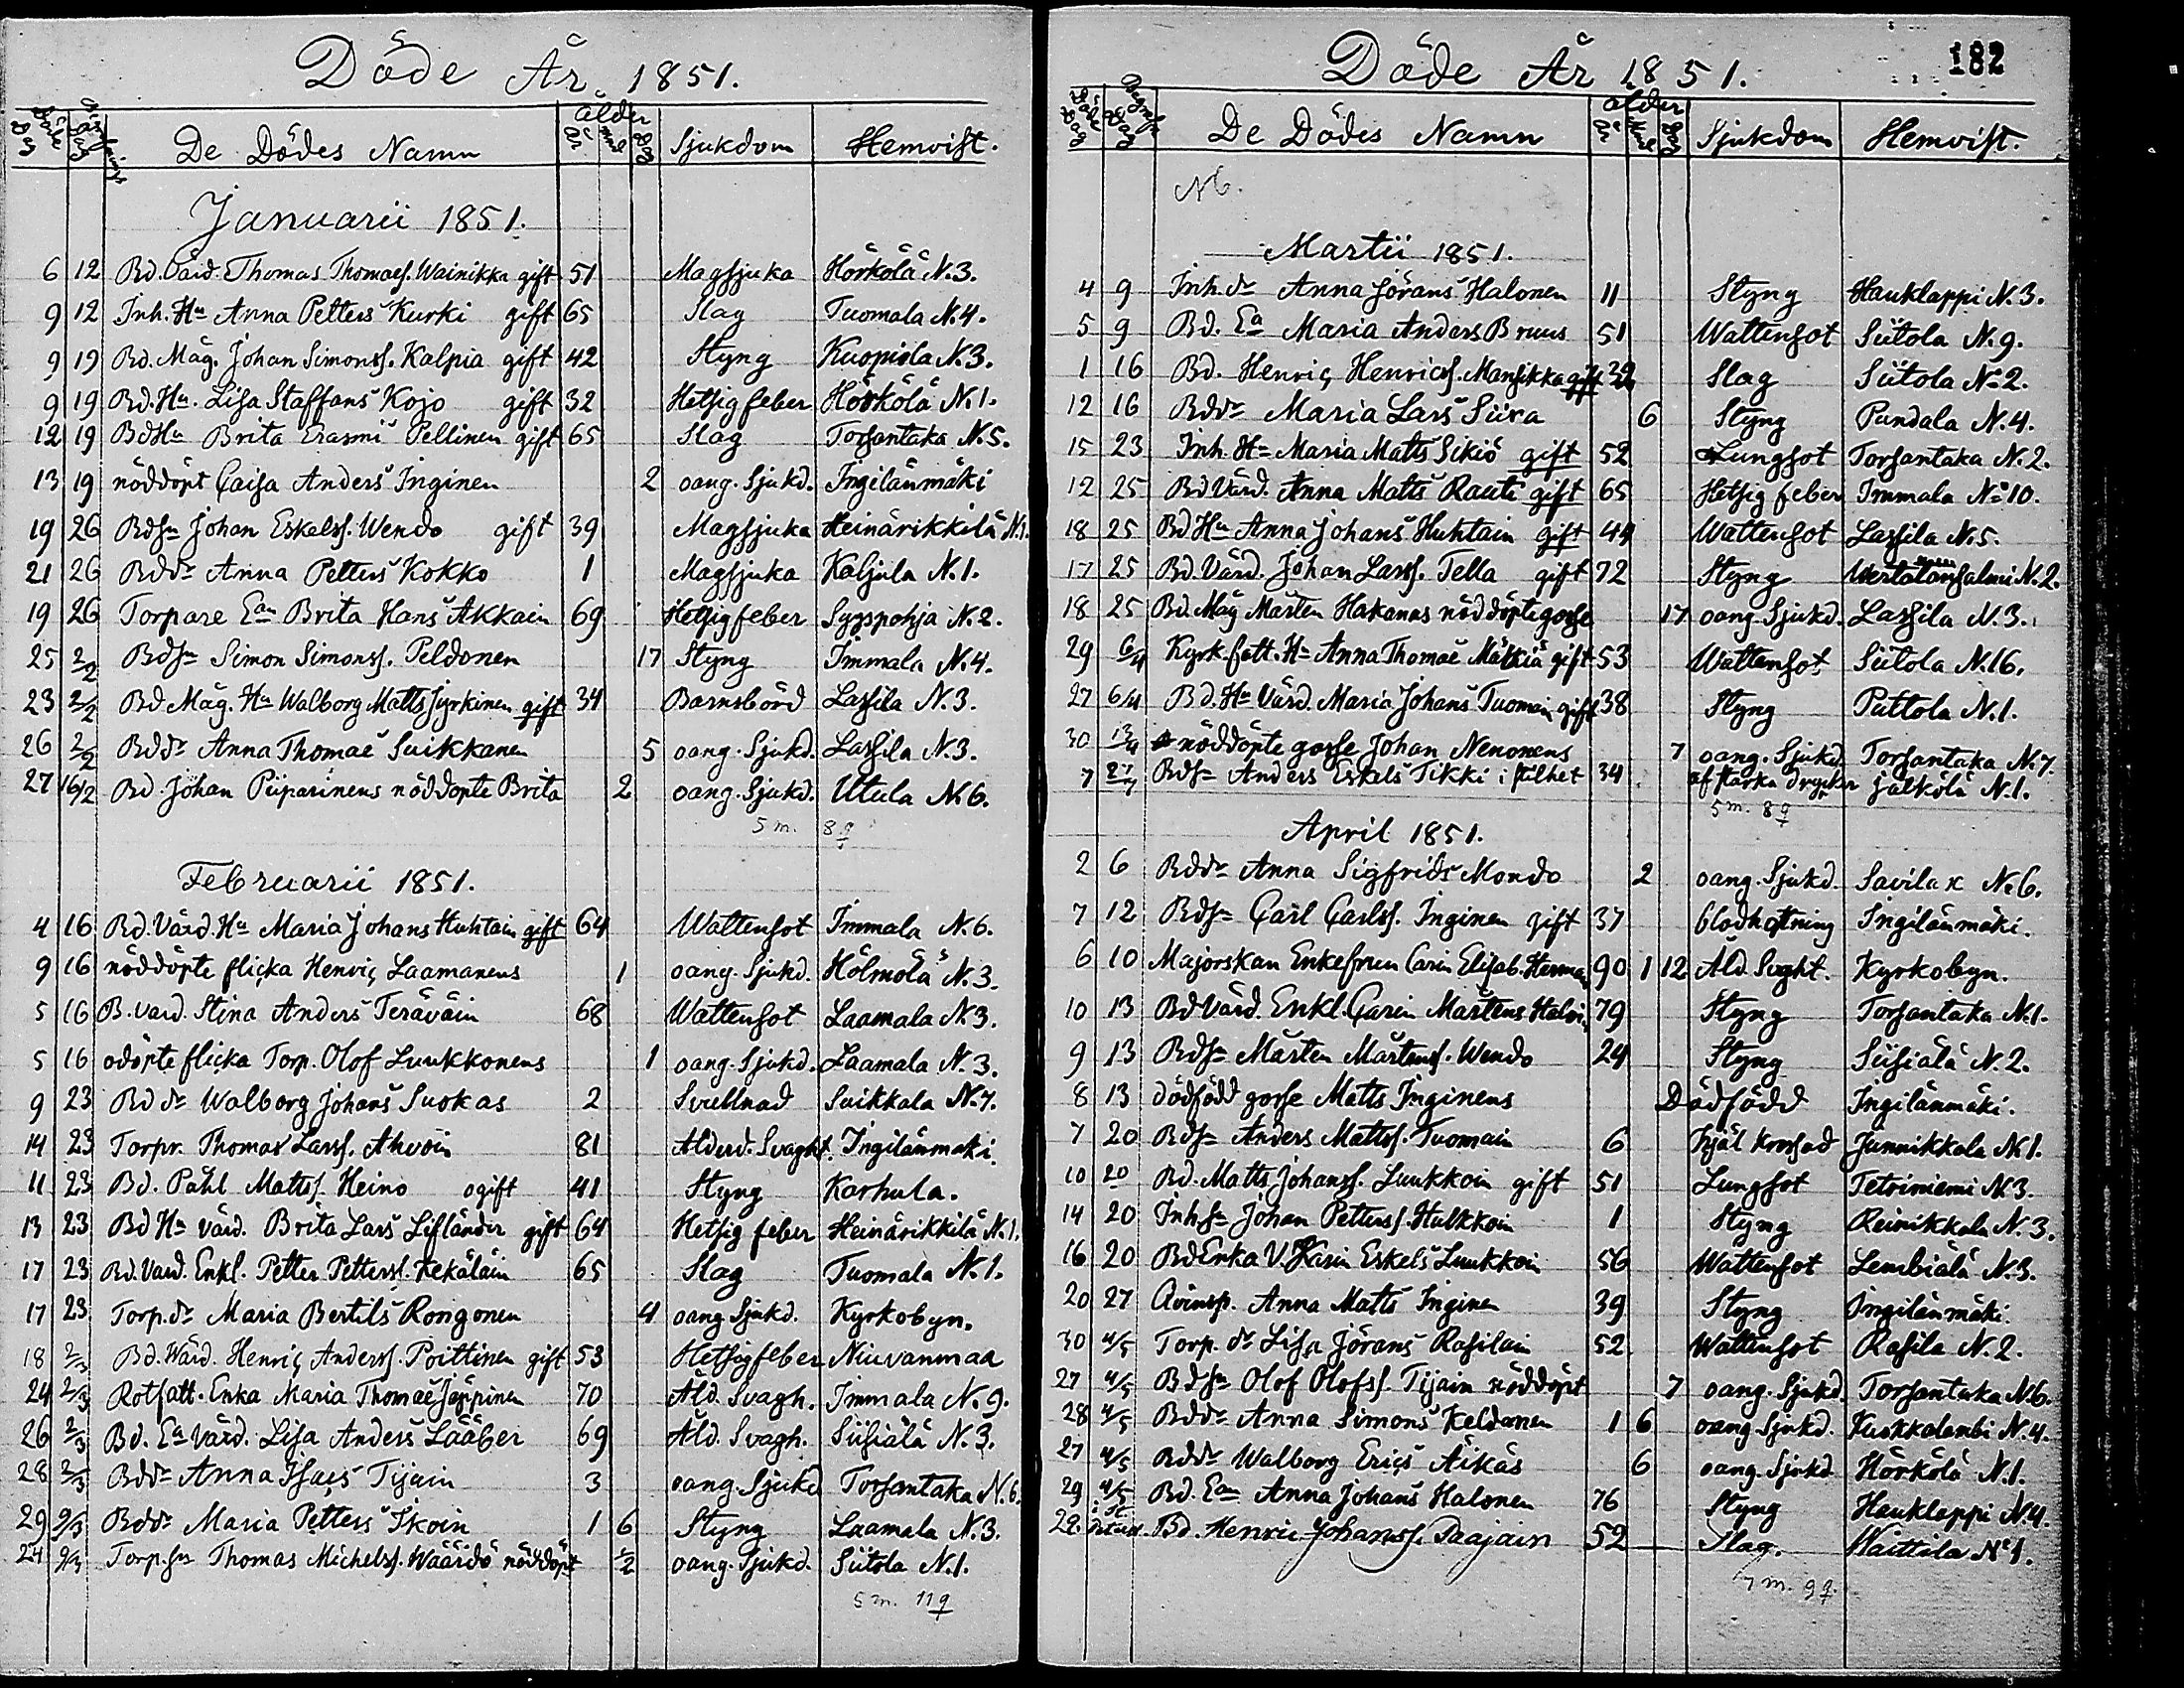 Döde År 1851.
Döde Dag Begrafnings Dag De Dödes Namn ålder år mnd dag Sjukdom Hemvist.
Januarii 1851.
6 12 Bd. Värd. Thomas Thomaes. Wainikka gift 51 Magsjuka Hörkölä N.3.
9 12 Inh. Hu Anna Petters Kurki gift 65 Slag Tuomala N.4.
9 19 Bd. Måg. Johan Simonss. Kalpia gift 42 Styng Kuopiola N.3.
9 19 Bd. Hu. Lisa Staffans Kojo gift 32 Hetsigfeber Hörkölä N.1.
12 19 BdHu Brita Erasmi Pellinen gift 65 Slag Torsantaka N.5.
13 19 nöddöpt Caisa Anders Inginen 2 oang. Sjukd. Ingilänmäki
19 26 BdSn Johan Eskelss. Wendo gift 39 Magsjuka Heinärikkilä N.1.
21 26 Bddr Anna Petters Kokko 1 Magsjuka Kaljula N.1.
19 26 Torpare Ean Brita Hans Akkain 69 Hetsigfeber Syyspohja N.2.
25 2/2 BdSn Simon Simonss. Peldonen 17 Styng Immala N.4.
23 2/2 Bd Måg. Hu Walborg Matts Jyrkinen gift 34 Barnsbörd Lassila N.3.
26 2/2 Bddr Anna Thomae Suikkanen 5 oang. Sjukd. Lassila N.3.
27 16/2 Bd. Johan Piiparinens nöddöpte Brita 2 oang. Sjukd. Utula N.6.
5 m. 8 q
Februarii 1851.
4 16 Bd. Värd. Hu Maria Johans Huhtain gift 64 Wattensot Immala N.6.
9 16 nöddöpte flicka Henric Laamanens 1 oang. Sjukd. Hölmölä N.3.
5 16 B. värd. Stina Anders Teräväin 68 Wattensot Laamala N.3.
5 16 odöpte flicka Torp. Olof Luukkonens 1 oang. Sjukd. Laamala N.3.
9 23 Bd dr Walborg Johans Suokas 2 Svullnad Saikkala N.7.
14 23 Torpr. Thomas Larss. Ahvoin 81 Alderd. Svaght. Ingilänmäki.
11 23 Bd. Påhl Matts. Heino ogift 41 Styng Karhula.
13 23 Bd Hu värd. Brita Lars Lifländer gift 64 Hetsig feber Heinärikkilä N.1.
17 23 Bd. Värd. Enkl. Petter Petterss. Kekäläin 65 Slag Tuomala N.1.
17 23 Torp. dr Maria Bertils Rongonen 4 oang Sjukd. Kyrkobyn.
18 2/3 Bd. Wärd. Henric Anderss. Poittinen gift 53 Hetsigfeber Niuvanmaa
24 2/3 Rotfatt. Enka Maria Thomae Jäppinen 70 Åld. Svagh. Immala N.9.
26 2/3 Bd. Ea värd. Lisa Anders Lääber 69 Åld. Svagh. Siisiälä N.3.
28 2/3 Bddr Anna Isacs Tijain 3 oang. Sjukd. Torsantaka N.6.
29 9/3 Bddr Maria Petters Ikoin 1 6 Styng Laamala N.3.
24 9/3 Torp. Sn Thomas Michelss. Wäärdö nöddöpt 1/2 oang. Sjukd. Siitola N.1.
5 m. 11 q
182
Döde År 1851.
Döde Dag Begrafn Dag De Dödes Namn ålder år Mnd Dag Sjukdom Hemvist.
N6.
Martii 1851.
4 9 Inh. dr Anna Jörans Halonen 11 Styng Hauklappi N.3.
5 9 Bd. Ea Maria Anders Bruus 51 Wattensot Siitola N.9.
1 16 Bd. Henric Henricss. Mansikka gift 32 Slag Siitola No 2.
12 16 Bddr Maria Lars Siira 6 Styng Pundala N.4.
15 23 Inh. Hu Maria Matts Sikiö gift 52 Lungsot Torsantaka N.2.
12 25 Bd Värd. Anna Matts Rauti gift 65 Hetsig feber Immala No 10.
18 25 Bd Hu Anna Johans Huhtain gift 44 Wattensot Lassila N.5.
17 25 Bd. Värd. Johan Larss. Tella gift 72 Styng N.2.
18 25 Bd. Måg Mårten Hakanas nöddöpte gosse 17 oang. Sjukd. Lassila N.3.
29 6/4 Kyrk. fatt. Hu Anna Thomae Mätkiä gift 53 Wattensot Siitola N.16.
27 6/4 Bd. Hu Värd. Maria Johans Tuomain gift 38 Styng Puttola N.1.
30 13/4 nöddöpte gosse Johan Nenonens 7 oang. Sjukd. Torsantaka N.7.
7 27/7 BdSn Anders Eskels Tikki i stilhet 34 af starka drycker Jälkölä N.1.
5 m. 8 q
April 1851.
2 6 Bddr Anna Sigfrids Mondo 2 oang. Sjukd. Savilax N.6.
7 12 BdSn Carl Carlss. Inginen gift 37 blodhostning Ingilänmäki.
6 10 Majorskan Enkefrun Carin Elisab. Herman 90 1 12 Åld. Svght. Kyrkobyn.
10 13 Bd Värd. Enkl. Carin Mårtens Haloin 79 Styng Torsantaka N.1.
9 13 BdSn Mårten Mårtens. Wendo 24 Styng Siisiälä N.2.
8 13 dödfödd gosse Matts Inginens Dödfödd Ingilänmäki.
7 20 BdSn Anders Mattss. Tuomain 6 hjäl krossad Junnikkala N.1.
10 20 Bd. Matts Johanss. Luukkoin gift 51 Lungsot Tetriniemi N.3.
14 20 Inh. Sn Johan Petterss. Hulkkoin 1 Styng Reinikkala N.3.
16 20 Bd Enka V. Karin Eskels Luukkoin 56 Wattensot Lembiälä N.3.
20 27 Qvinsp. Anna Matts Inginen 39 Styng Ingilänmäki.
30 4/5 Torp. dr Lisa Jörans Rasilain 52 Wattensot Rasila N.2.
27 4/5 BdSn Olof Olofss. Tijain nöddöpt 7 oang. Sjukd. Torsantaka N.6.
28 4/5 Bddr Anna Simons Keldanen 1 6 oang. Sjukd. Kurkkalambi N.4.
27 4/5 Bddr Walborg Erics Äikäs 6 oang. Sjukd. Hörkölä N.1.
29 4/5 Bd. Ean Anna Johans Halonen 76 Styng Hauklappi N.4.
29. Bd. Henric Johanss. Paajain 52 Slag. Haittila No 1.
7 m. 9 q.